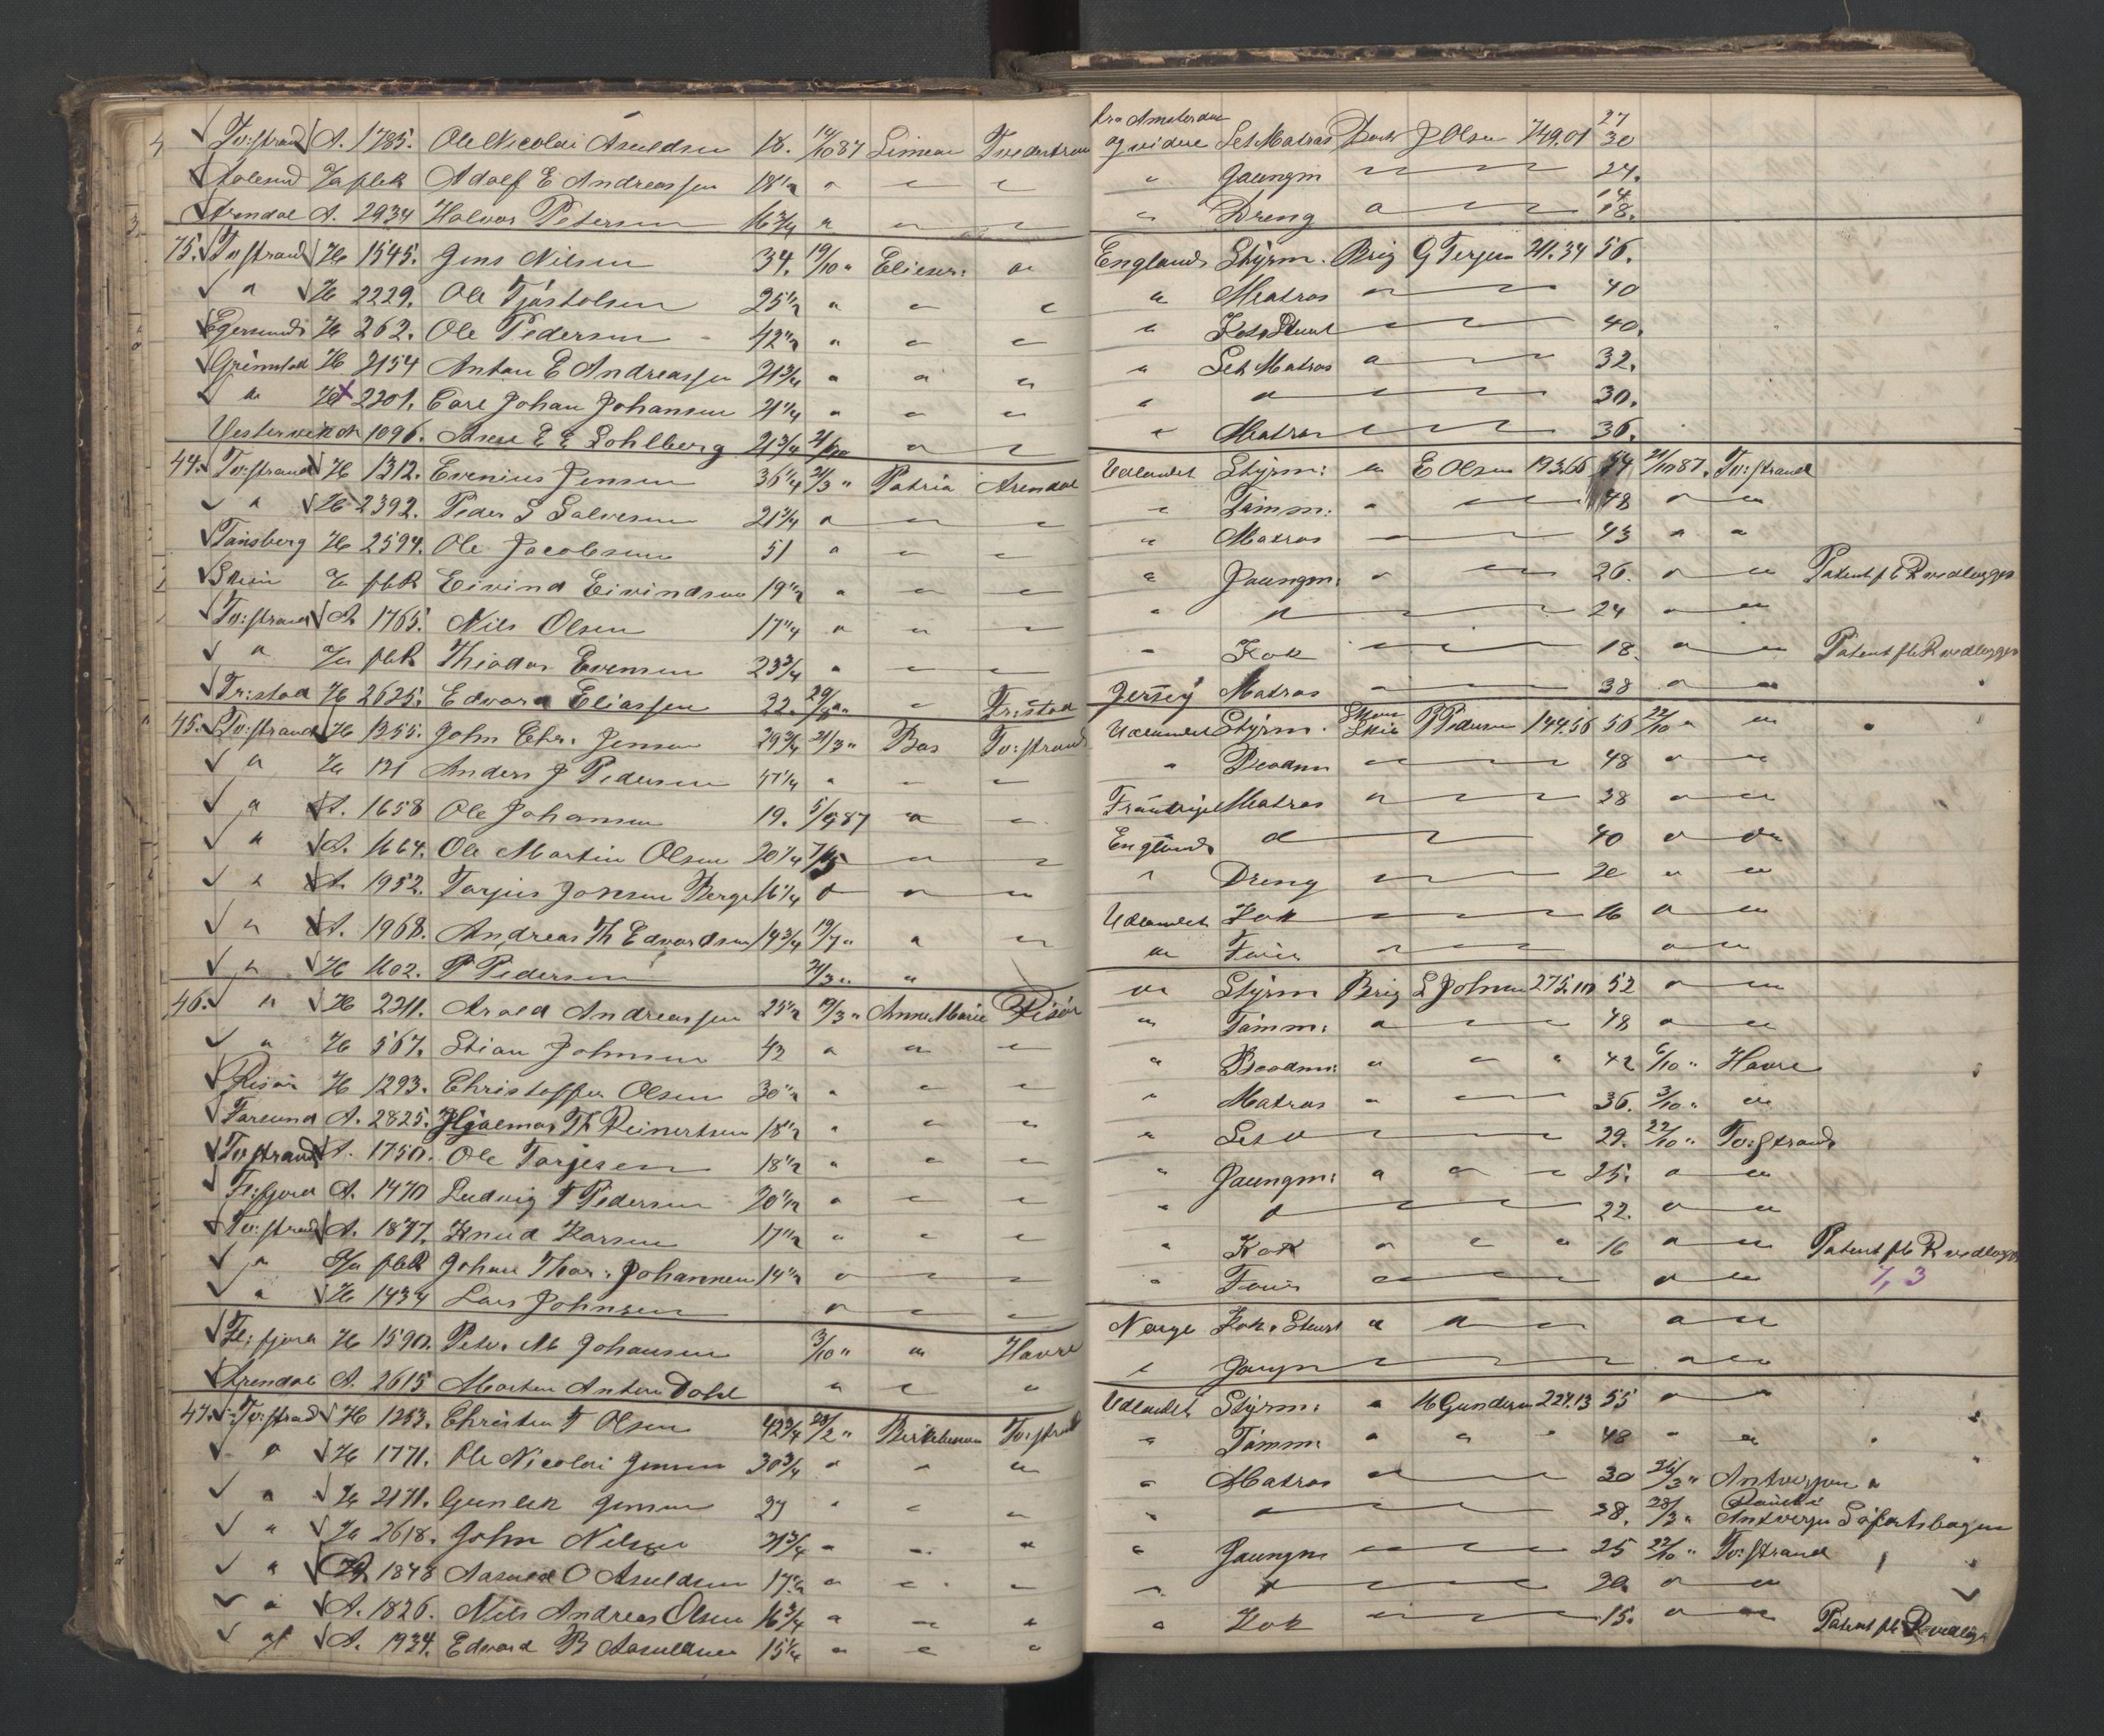 fra Amsterdam
Tv:strand A. 1785. Ole Nicolai Asuldsen 18. 14/10 87 Limeau Tvedestrand og videre Let Matros Bark J Olsen 749.01 27 30
Aalesund Ja pbR Adolf E Andreassen 18 1/2 " " " " Jaungm " " " 24.
Arendal A. 2934 Halvor Petersen 16 3/4 " " " " Dreng " " " 14 18.
75. Tv:strand H 1545. Jens Nilsen 34. 19/10 " Elieser: " England Styrm. Brig G Terjesen 211.34 56.
" H 2229. Ole Tjøstolsen 25 1/2 " " " " Matros " " " 40
Egersund H 262. Ole Pedersen 42 1/2 " " " " Kok Stuert " " " 40.
Grimstad H 2154 Anton E Andreassen 21 3/4 " " " " Let Matros " " " 32.
" H x 2201. Carl Johan Johansen 21 1/4 " " " " " 30.
Vestervik A 1096. Axel E E Lohlberg 21 3/4 21/10 " " " Matros " " " 36.
44. Tv:strand H 1312. Evenius Jensen 36 1/4 21/3 " Patria Arendal Udlandet Styrm: " E Olsen 193.66 54 21/10 87. Tv:strand
" H 2392. Peder S Salvesen 21 3/4 " " " " Tømm: " " " 48 " "
Tønsberg H 2594. Ole Jacobsen 51 " " " " Matros " " " 43 " "
Skien Ja pbR Eivind Eivindsen 19 1/2 " " " " Jaungm: " " " 26. " " Patent pb R vedlegges
Tv:strand A 1765. Nils Olsen 17 1/4 " " " " " 24 " "
" Ja pbR Thiodor Evensen 23 3/4 " " " " Kok " " " 18. " " Patent pb R vedlegges
Fr:stad H 2625. Edvard Eliassen 22. " Fr:stad Jersey Matros " " " 38 " "
45. Tv:strand H 1355. John Chr. Jensen 29 3/4 21/3 " Bas Tv:strand Udlandet Styrm. Skon Skib P Pedersen 144.56 56 22/10 " "
" H 121 Anders J Pedersen 47 1/4 " " " " Beodm " " " 48 " "
" A. 1658 Ole Johansen 19. 5/9 87 " " Frankrige Matros " " " 38 " "
" A. 1664. Ole Martin Olsen 20 1/4 " " England " " 40 " "
" A. 1952. Tarjus Jonsen Berge 16 1/4 " " " " Dreng " " 20 " "
" A. 1968. Andreas Th Edvardsen 14 3/4 19/7 " " " Udlandet Kok " " " 16 " "
" H 1602. P Pedersen 21/3 " " " Fører " " " "
46. " H 2211. Arold Andreassen 25 1/2 19/3 " Anne Marie Risør " Styrm Brig L Johnsen 275.10 52 " "
" H 567. Stian Johnsen 43 " " " " Tømm: " " " 48 " "
Risør H 1293. Christoffer Olsen 30 1/2 " " " " Beodm: " " " 42 6/10 " Havre
Farsund A. 2825. Hjalmar Th Reinertsen 18 1/2 " " " " Matros " " 36. 3/10 " "
Tv:strand A. 1750. Ole Tarjesen 18 1/2 " " " " Let " " 29. 22/10 " Tv:Strand
Fl:fjord A. 1470 Ludvig T Pedersen 20 1/2 " " " " Jaungm: " " " 25. " "
Tv:strand A. 1877. Knud Karsen 17 1/2 " " " " " 22. " "
" Ja pbR Johan Thor. Johannesen 14 1/2 " " " " Kok " " " 16 " " Patent pb R vedlegges
" H 1434 Lars Johnsen " " " " Fører " " " " " 7, 3
Fl:fjord H 1590. Peter M Johansen 3/10 " " Havre Norge Kok. Stuert " " " " "
Arendal A. 2615 Morten Anton Dahl " " " " Jaugn " " " "
47. Tv:strand H 1253. Christen T Olsen 42 3/4 28/2 " Birkebenen Tv:strand Udlandet Styrm: " M Gundersen 227.13 55 " "
" H 1771. Ole Nicolai Jensen 30 3/4 " " " " Tømm: " " " 48 " "
" H 2171. Gunlek Jensen 27 " " " " Matros " " 30 26/3 " Antwerpen "
" H 2618. John Nilsen 21 3/4 " " " " " 28. 28/3 " Antverpn Søfartsbogen
" A 1848 Aasuld O Asuldsen 17 1/2 " " " " Jaungm " " 25 22/10 " Tv:strand
" A. 1826. Nils Andreas Olsen 16 3/4 " " " " " 20. " "
" A. 1934. Edvard B Aasuldsen 15 1/4 " " " " Kok " " 15. " " Patent pb R vedlegges